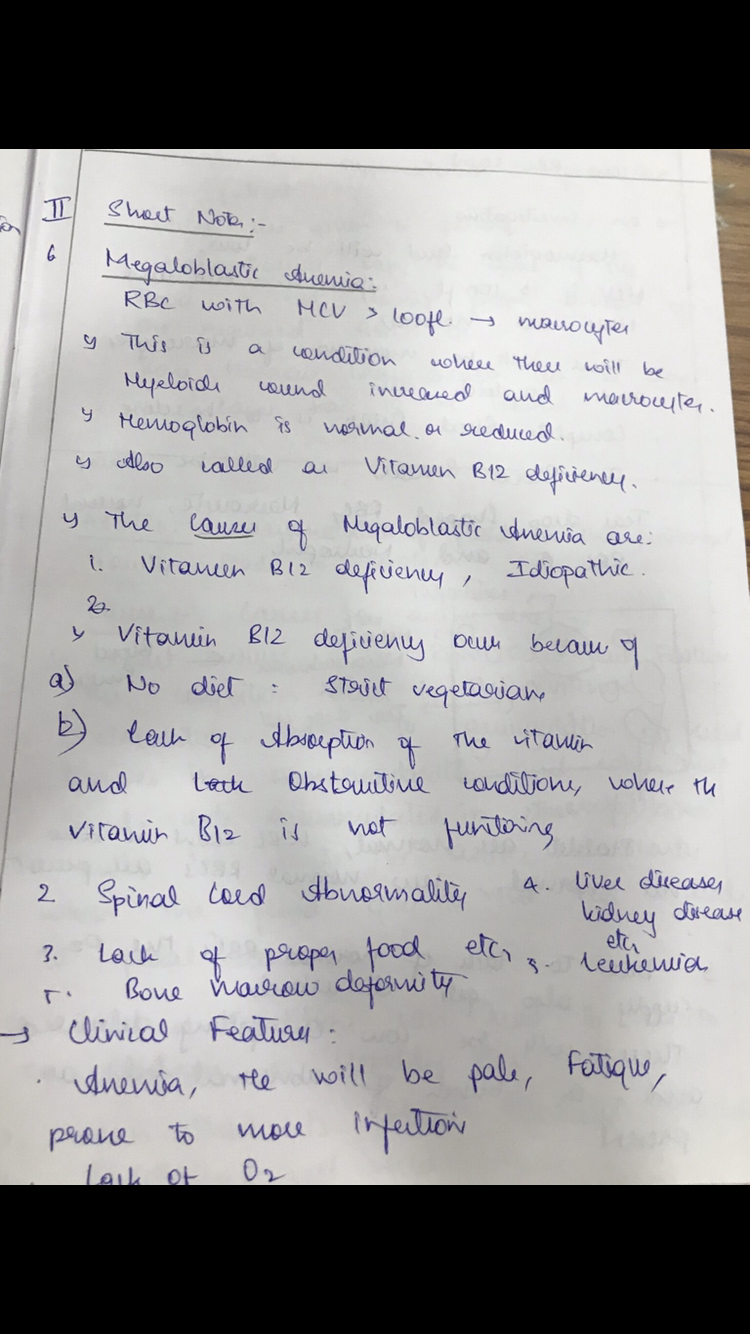 II Short Notes:-
6 Megaloblastic Anemia:
RBC with MCV > 100fl. → macrocytes
This is a condition where there will be
Myeloid count increased and macrocytes.
Hemoglobin is normal or reduced.
Also called as Vitamin B12 deficiency.
The causes of Megaloblastic Anemia are:
i. Vitamin B12 deficiency, Idiopathic.
2.
Vitamin B12 deficiency occurs because of
a) No diet: Strict vegetarians
b) Lack of Absorption of the vitamin
and Lack Obstructive conditions, where the
vitamin B12 is not
2 Spinal Cord Abnormality
3. Lack of proper food etc,
5. Bone marrow deformity
4. liver diseases,
kidney disease
etc,
5. leukemia
→ Clinical Features:
Anemia, He will be pale, Fatigue,
prone to more infection
Lack of O2